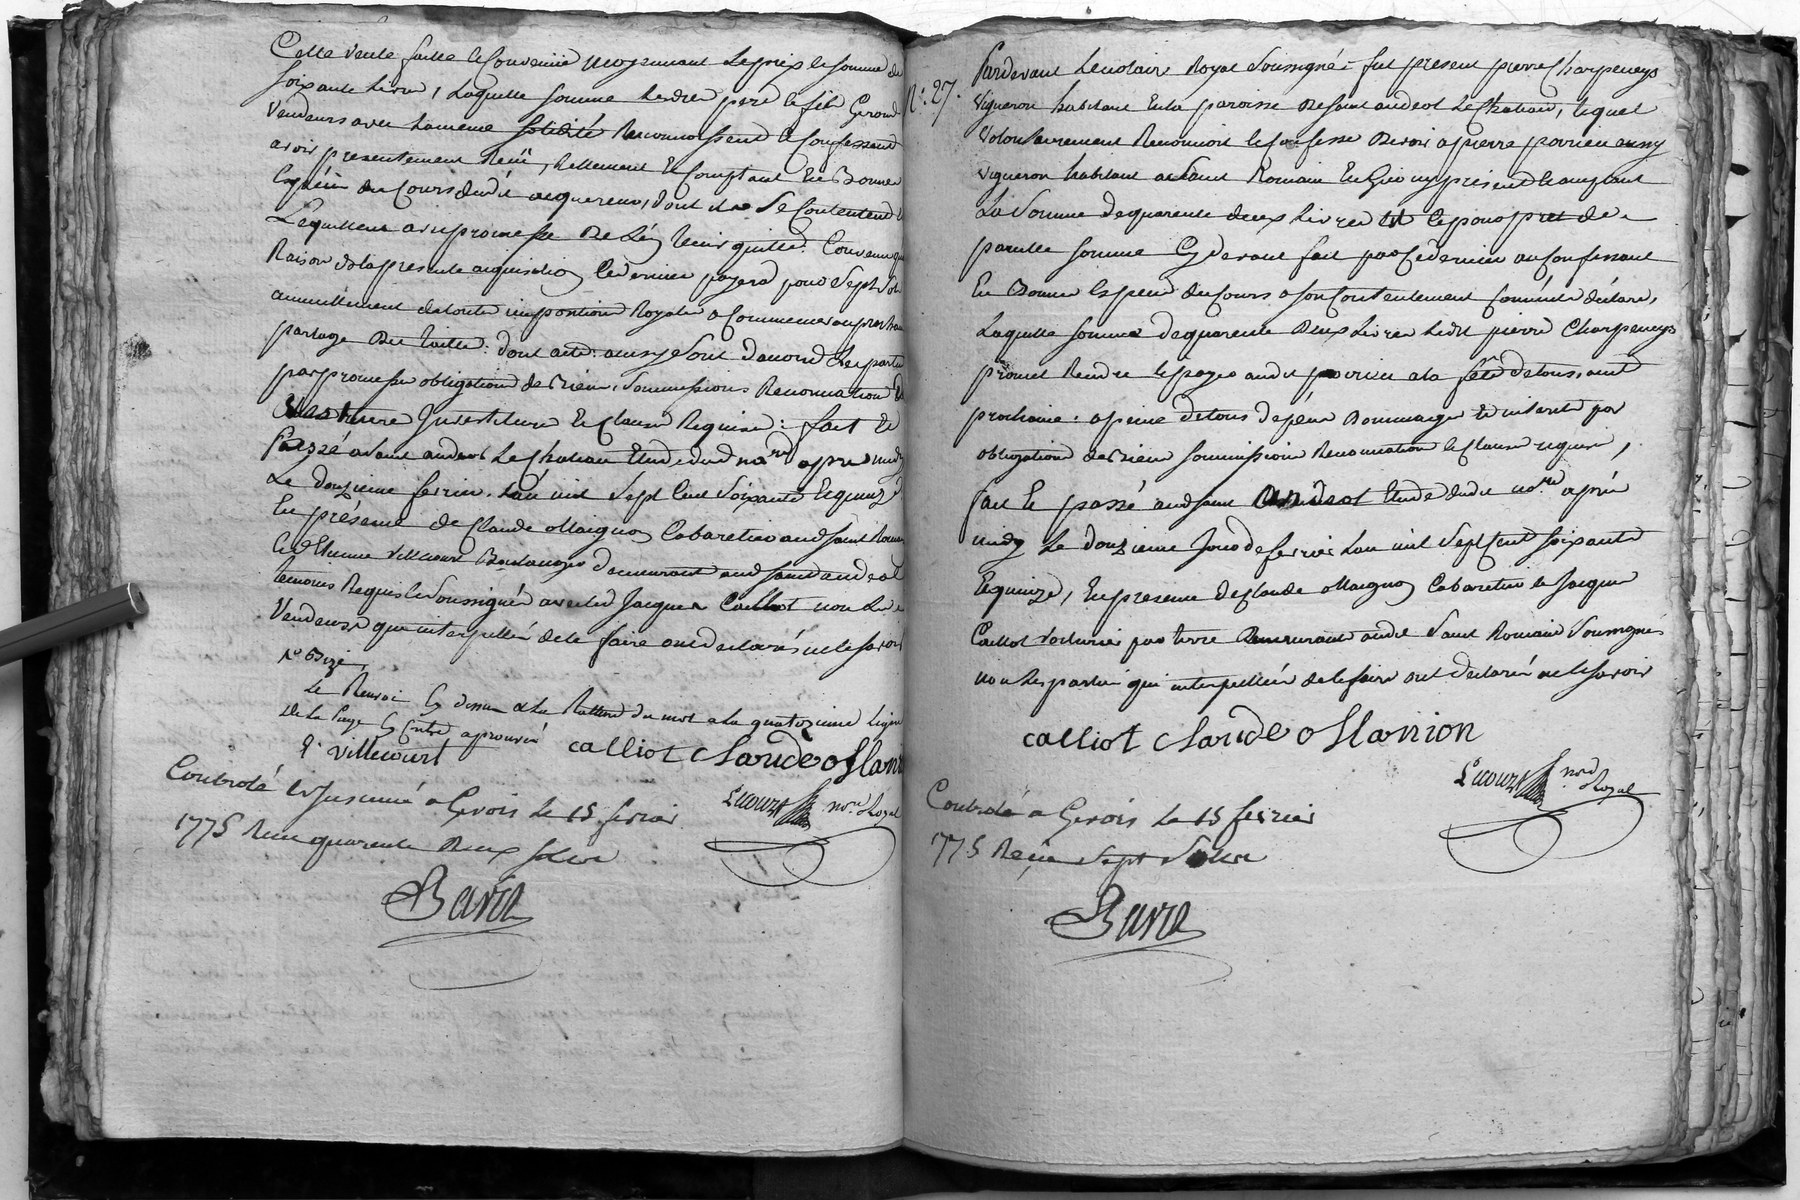 Cette vente faitte et convenüe moyennant le prix et somme de
soixante livres, laquelle somme lesdits pere et fils Giroud
vendeurs avec la meme solidité reconnoissent et confessent
avoir presentement reçu, réellement et comptant en bonnes
espéces du cours dudit acquereur, dont ils se contentent
l'equittent avec promesse de l'en tenir quitte. Convenu que
raison de la presente acquisition ce dernier payera pour sept sols
annuellement de toute imposition Royale a commencer au prochain
partage des tailles: dont acte: ainsy se sont d'accord les parties
par promesse obligations de biens, soumissions Renonciations
investiture et clauses Requises: fait et
passé a saint andeol le Chateau Etude dudit nore apres midy
Le douzieme fevrier, l'an mil sept cent soixante et quinze
En présence de Claude Magnon Cabaretier audit saint Romain
et d'Etienne Villecourt Boulanger demeurant audit saint andeol
temoins Requis et soussignés avec led. Jacques Calliot non les
vendeurs que interpellés de le faire ont declarés ne le savoir
Le Renvoi cy dessus et la Rature du mot a la quatorzieme ligne
de la page cy contre aprouvés
E. villecourt calliot Claude Manion
Lecourt nore Royal
Controlé et insinué a Givors le 15 fevrier
1775 Reçu quarente deux sols
Barie
N°. 27.
Pardevant le notaire Royal soussigné fut present pierre Charpeneys
vigneron habitant en la paroisse de saint andeol le Chateau, lequel
volontairement Reconnoit et confesse devoir a pierre poivrieu aussy
vigneron habitant a saint Romain en Giei icy présent et acceptant
La somme de quarente deux livres et ce pour pret de
pareille somme cy devant fait par ce dernier au confessant
En Bonnes Especes du cours a son contentement comme il a déclaré,
Laquelle somme de quarente deux livres ledit pierre Charpeneys
promet Rendre et payer audit poivrieu a la fête de toussaint
prochaine: a peine de tous depens dommages et interets par
obligations de biens soumissions Renonciations et clauses requises,
fait et passé audit saint andeol Etude dudit nore après
midy Le douzieme jour de fevrier l'an mil sept cent soixante
Et quinze, En presence de Claude Magnon Cabaretier et Jacques
Calliot voiturier par terre demeurants audit saint Romain soussignés
non les parties qui interpellées de le faire ont declaré ne le savoir
calliot Claude Manion
Lecourt nore Royal
Controlé a Givors le 15 fevrier
1775 Reçu sept sols
Barie